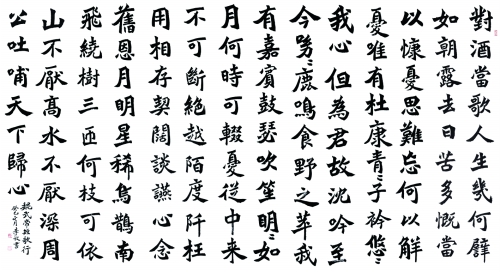 對酒當歌人生幾何譬
如朝露去日苦多慨當
以慷憂思難忘何以解
憂唯有杜康青〻子衿悠〻
我心但為君故沈吟至
今呦〻鹿鳴食野之苹我
有嘉賓鼓瑟吹笙明〻如
月何時可輟憂從中来
不可斷絕越陌度阡枉
用相存契闊談讌心念
舊恩月明星稀烏鵲南
飛繞樹三匝何枝可依
山不厭高水不厭深周
公吐哺天下歸心
魏武帝短歌行